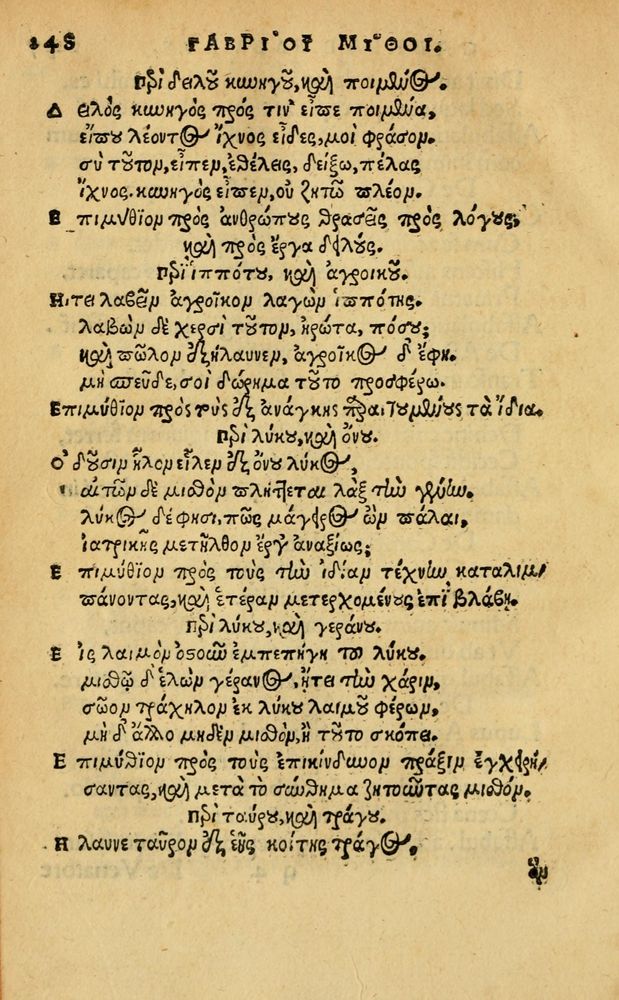 248 ΓΑΒΡΙ´ΟΥ ΜΥ͂ΘΟΙ.
Περὶ δειλοῦ κυνηγοῦ, καὶ ποιμένος.
Δειλὸς κυνηγὸς πρός τιν' εἶπε ποιμένα,
εἴπου λέοντος ἴχνος εἶδες, μοι φράσον.
σὺ τοῦτον, εἶπεν, ἐθέλεις, δείξω, πέλας
ἴχνος. κυνηγὸς εἶπεν, οὐ ζητῶ πλέον.
Ἐπιμύθιον πρὸς ἀνθρώπους θρασεῖς πρὸς λόγους,
καὶ πρὸς ἔργα δειλούς.
Περὶ ἱππότου, καὶ ἀγροικοῦ.
Ἤιτει λαβεῖν ἀγροῖκον λαγὼν ἱππότης.
λαβὼν δὲ χερσὶ τοῦτον, ἠρώτα, πόσου;
καὶ πῶλον ἐξήλαυνεν, ἀγροῖκος δ' ἔφη.
μὴ σπεῦδε, σοὶ δώρημα τοῦτο προσφέρω.
Ἐπιμύθιον πρὸς τοὺς ἐξ ἀνάγκης προϊεμένους τὰ ἴδια.
Περὶ λύκου, καὶ ὄνου.
Ὀδοῦσιν ἧλον εἷλεν ἐξ ὄνου λύκος,
αιτῶν δὲ μισθὸν πλήττεται λὰξ τὴν γένυν.
λύκος δέ φησι, πῶς μάγειρος ὢν πάλαι,
ἰατρικῆς μετῆλθον ἔργ' ἀναξίως;
Ἐπιμύθιον πρὸς τοὺς τὴν ἰδίαν τέχνην καταλιμ-
πάνοντας, καὶ ἑτέραν μετερχομένους ἐπὶ βλάβῃ.
Περὶ λύκου, καὶ γεράνου.
Εἰς λαιμὸν ὀστοῦν ἐμπεπήγη τῷ λύκου.
μισθῷ δ' ἑλὼν γέρανος, ἤιτει τὴν χάριν,
σῶον τράχηλον ἐκ λύκου λαιμοῦ φέρων,
μὴ δ' ἄλλο μηδὲν μισθὸν, ἢ τοῦτο σκόπει.
Ἐπιμύθιον πρὸς τοὺς ἐπικίνδυνον πρᾶξιν ἐγχειρή-
σαντας, καὶ μετὰ τὸ σώθημα ζητοῦντας μισθόν.
Περὶ ταύρου, καὶ τράγου.
Ἤλαυνε ταῦρον ἐξ ἑῆς κοίτης τράγος,